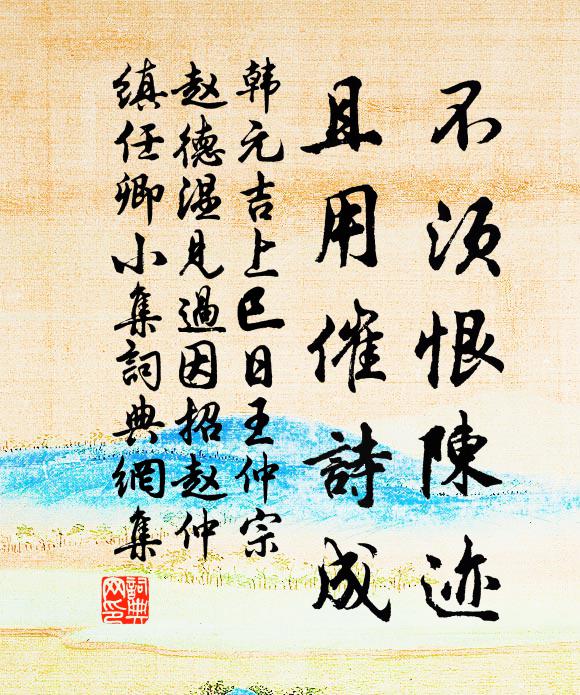 不须恨陳迹
且用催詩成
韩元吉上巳日王仲宗
赵德温见過因招赵仲
缜任卿小集詞典網集
詞典網印